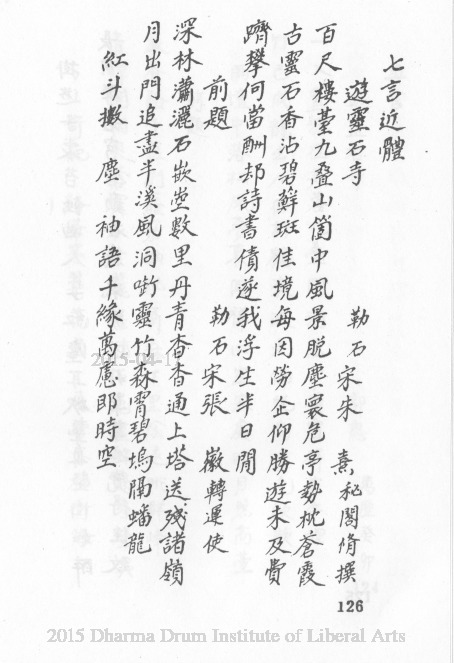 七言近體
遊靈石寺
勒石宋朱 熹秘閣脩撰
百尺樓臺九叠山箇中風景脫塵寰危亭勢枕蒼霞
古靈石香沾碧蘚斑佳境每因勞企仰勝遊未及費
躋攀何當酬却詩書債遂我浮生半日閒
前題
勒石宋張 徽轉運使
深林瀟灑石嵌壺數里丹青杳杳通上塔送殘諸嶺
月出門追盡半溪風洞 靈竹森霄碧塢隔蟠龍
紅斗擻塵 袖語千緣萬慮即時空
126
2015-04-1
2015 Dharma Drum Institute of Liberal Arts